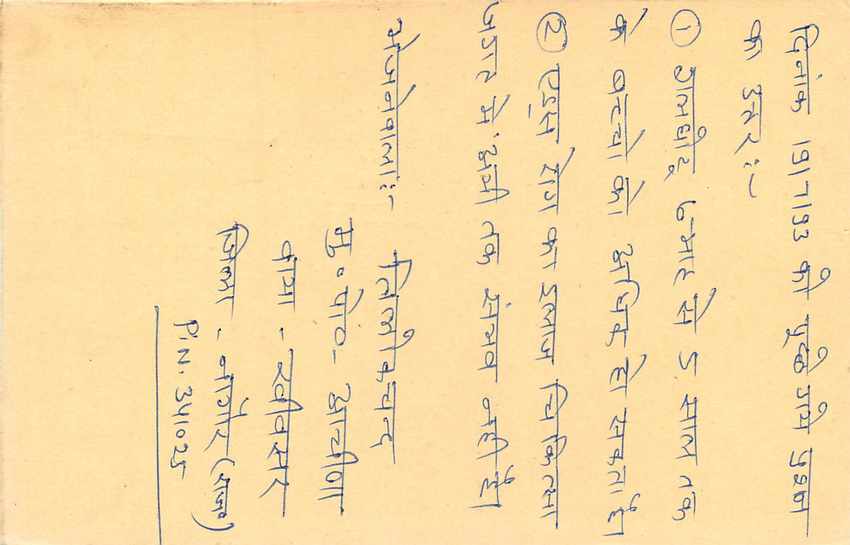 दिनांक 19/7/93 को पूछे गये प्रश्न
का उत्तर:-
① गलघोंटू 6 माह से 5 साल तक
के बच्चों को अधिक हो सकता है।
② एड्स रोग का इलाज चिकित्सा
जगत में अभी तक संभव नहीं है।
भेजनेवाला:- त्रिलोकचन्द
मु॰ पो॰- आचीणा
वाया - खींवसर
जिला - नागौर (राज॰)
P.N. 341025